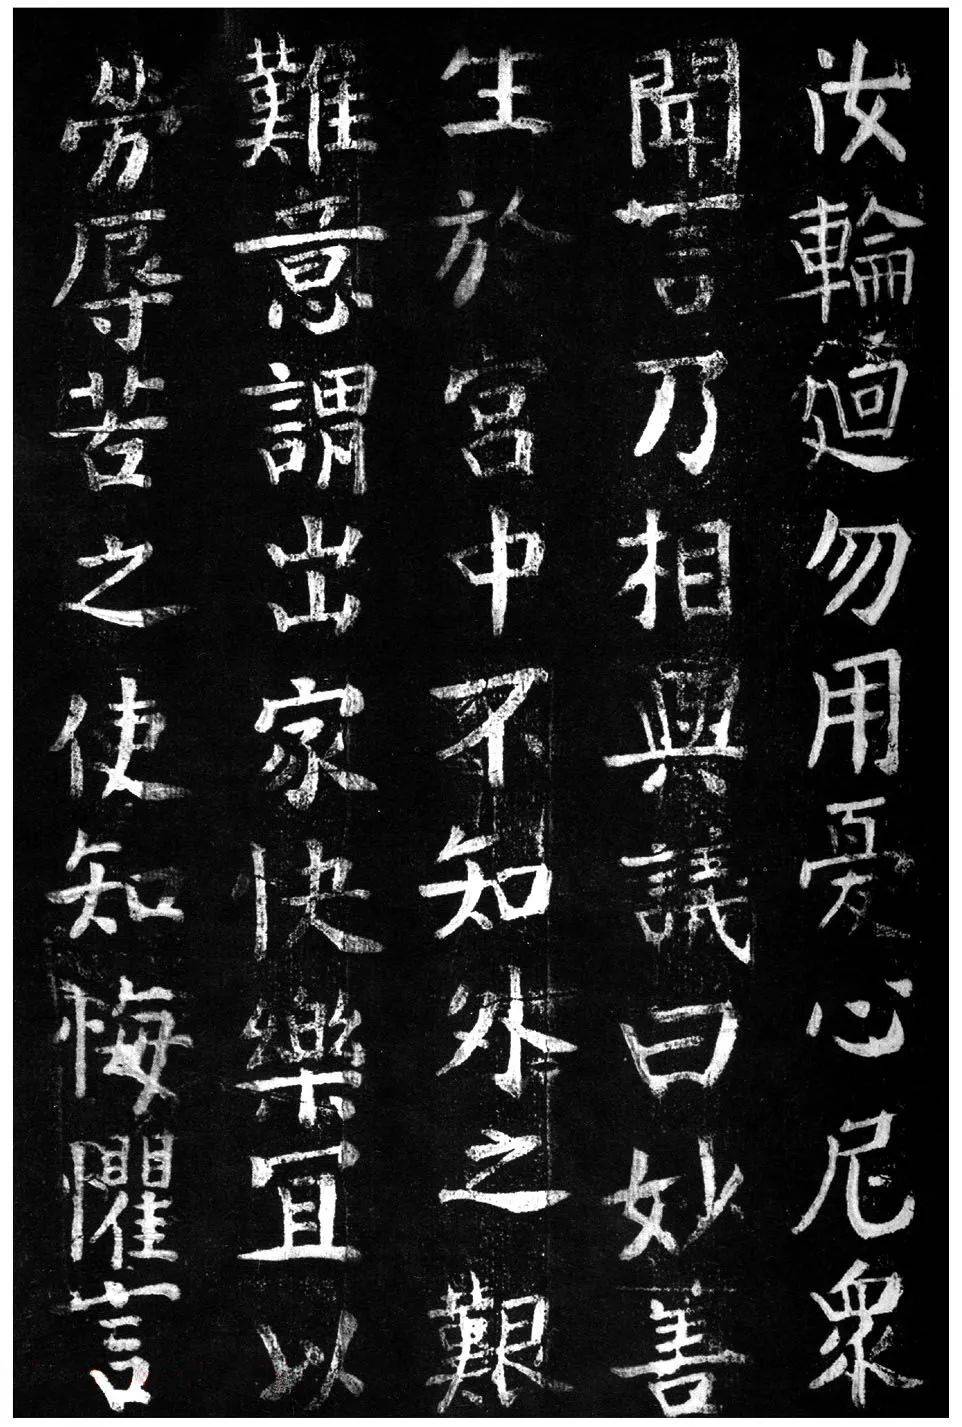 汝輪迴勿用憂心尼衆
聞言乃相與議曰妙善
生於宮中不知外之艱
難意謂出家快樂宜以
勞辱苦之使知悔懼言